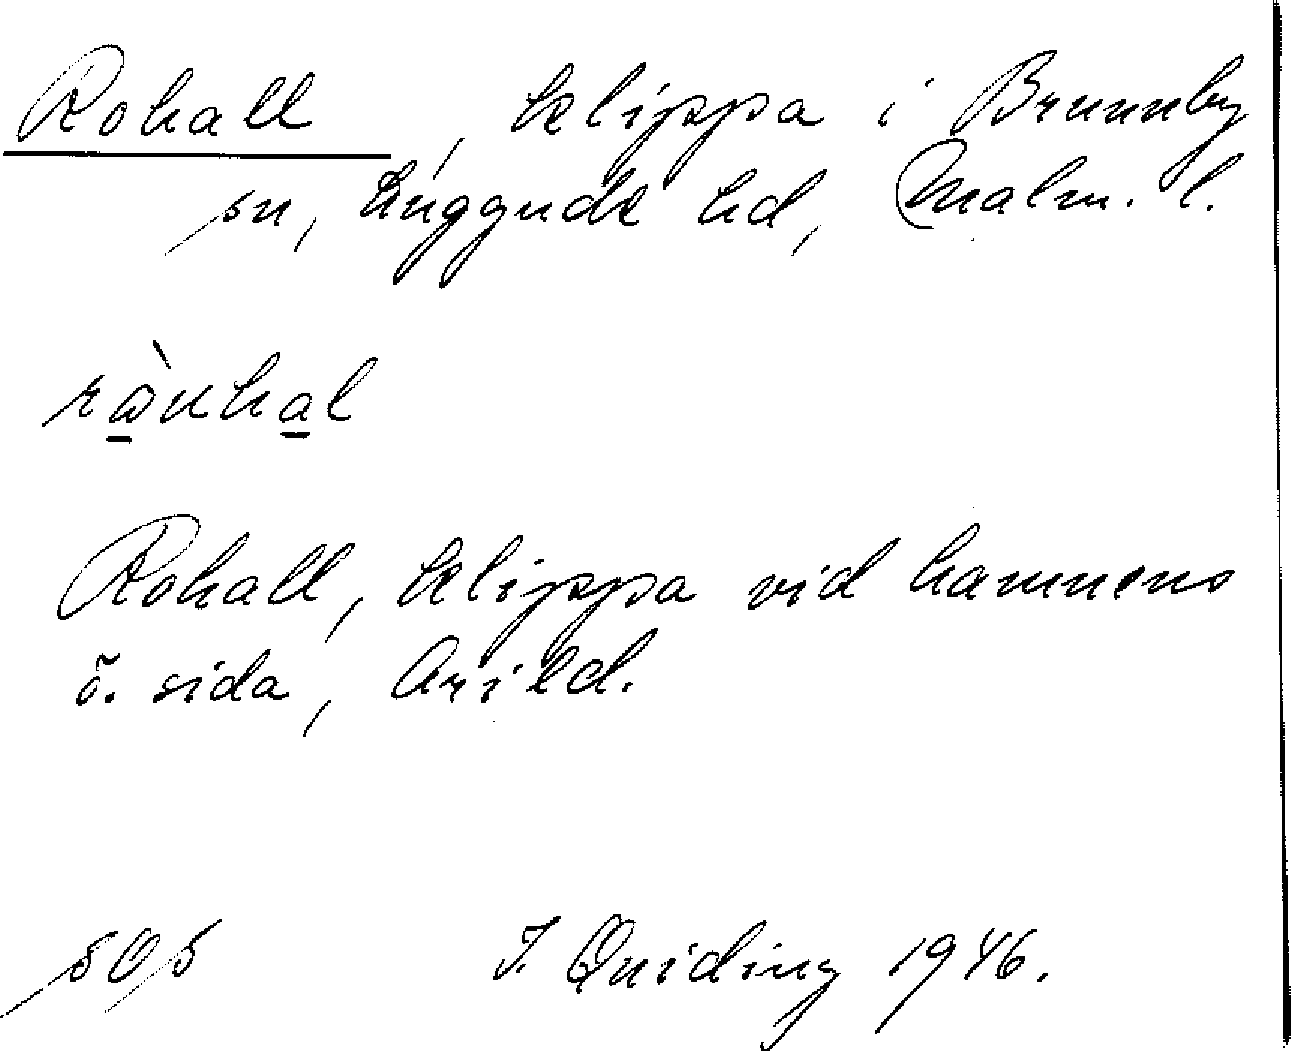 Rohall, klippa i Brunnby
sn, Luggude hd, Malm. l.
ràuhal
Rohall, klippa vid hamnens
ö. sida, Arild.
I. Quiding 1946.